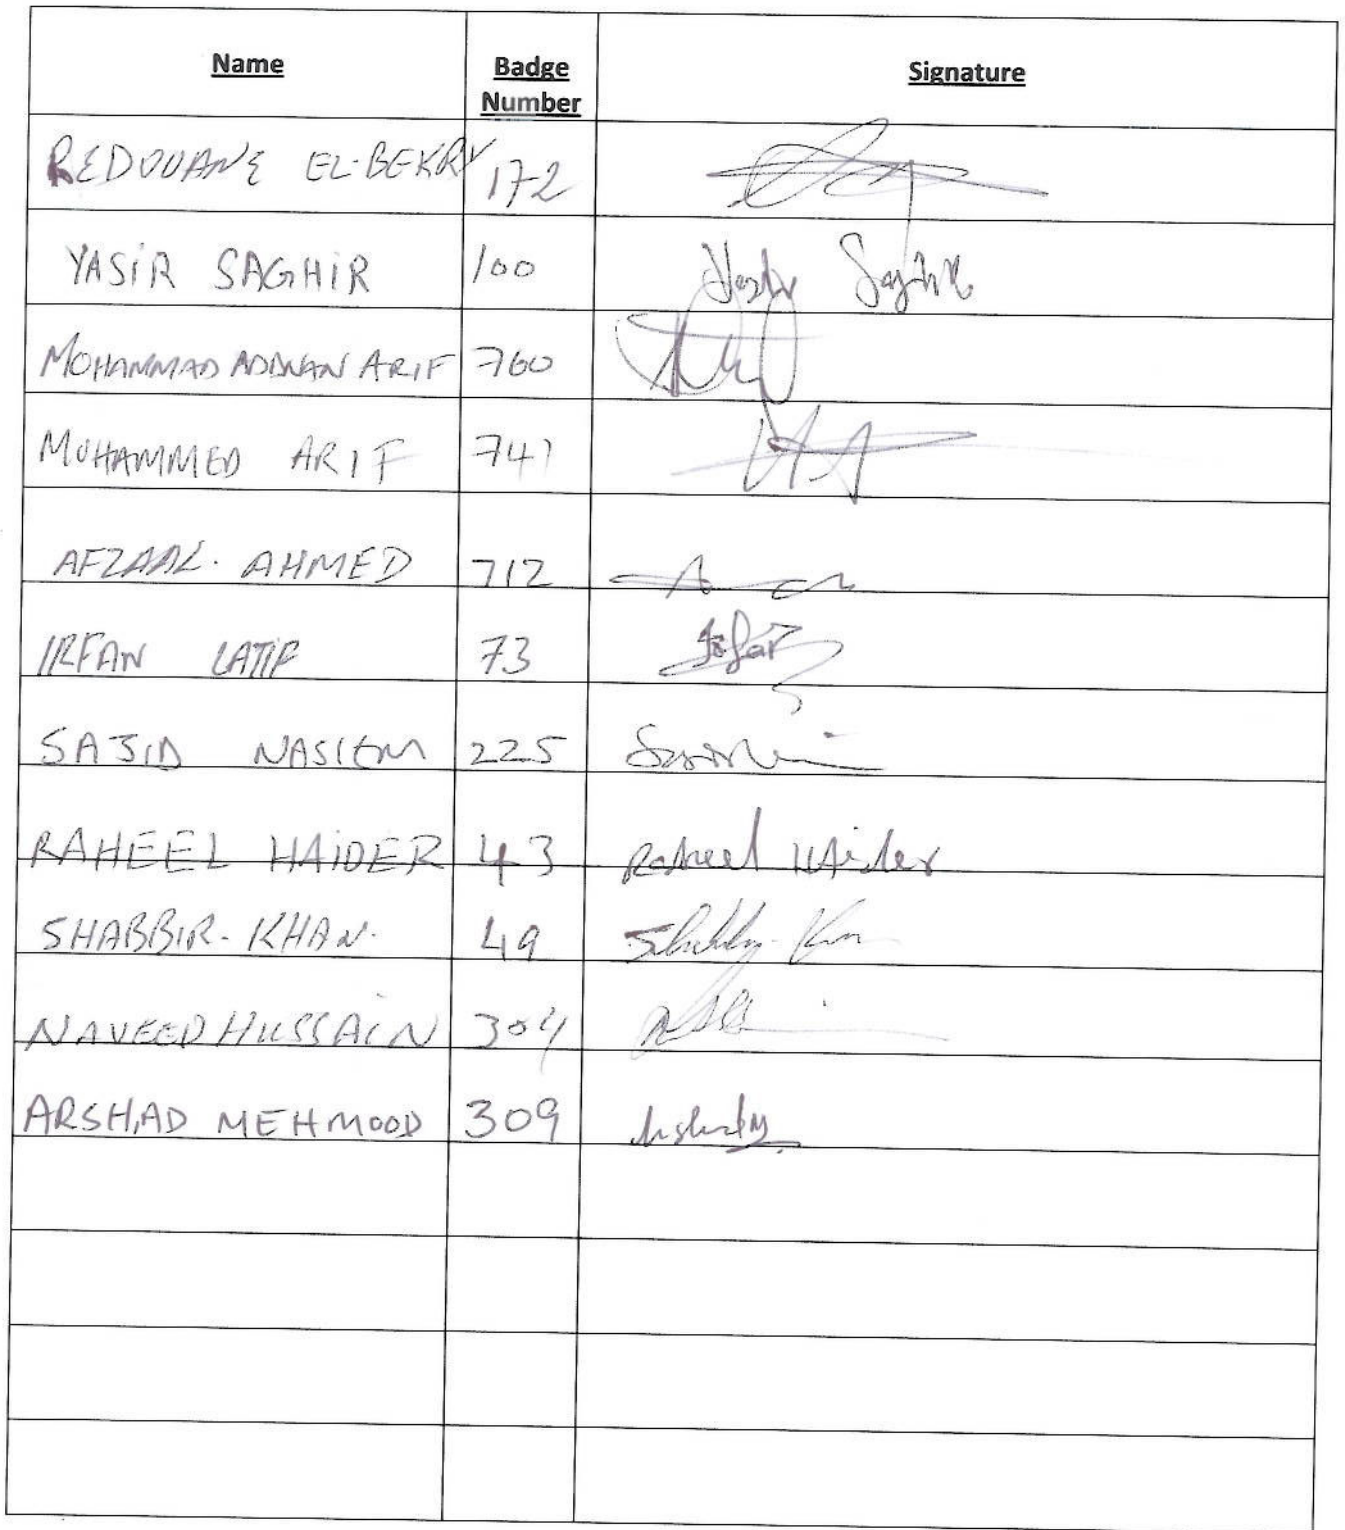 Name Badge Number Signature
REDOUANE EL-BEKRY 172
YASIR SAGHIR 100 Yasir Saghir
MOHAMMAD ADDNAN ARIF 760
MOHAMMED ARIF 741
AFZAAL. AHMED 712
IRFAN LATIF 73 Irfan
SAJID NASIEM 225
RAHEEL HAIDER 43 Raheel HAider
SHABBIR. KHAN. 49
NAVEED HUSSAIN 304
ARSHAD MEHMOOD 309